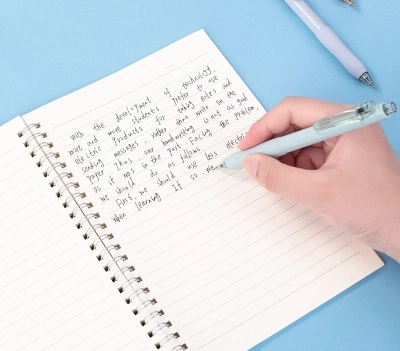 With the development of technology,
more and more students prefer to use
electric products for taking notes and
sending messages rather than write on the
paper. Thus our handwriting is not as good
as it was in the past. Facing the problem,
we should do as follows.
First, we should use less electric
when learning. It is we